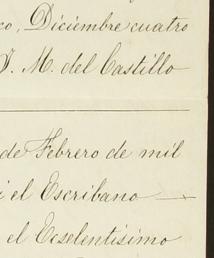 co, Diciembre cuatro
J. M. del Castillo
de Febrero de mil
i el Escribano
el Ecselentisimo